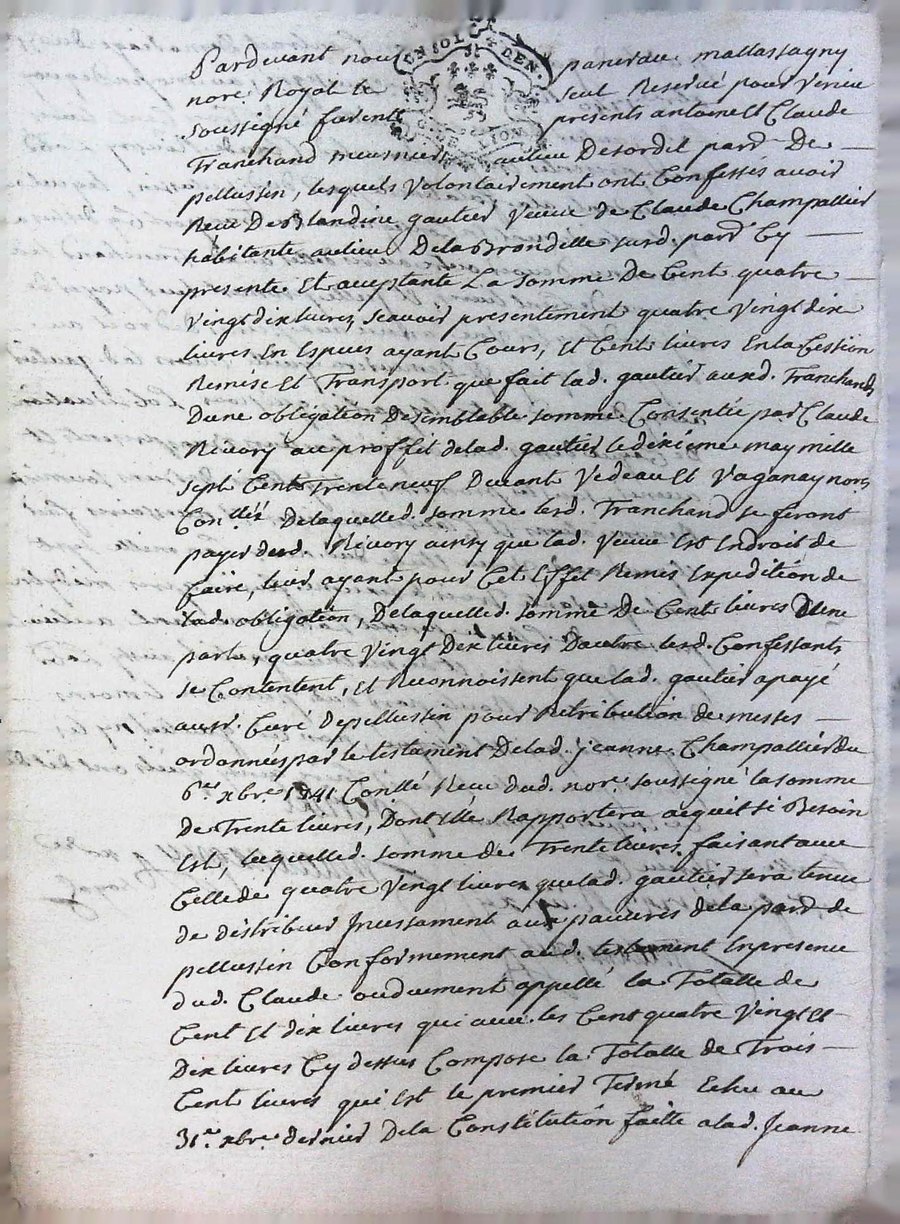 UN SOL DEN.
GNE. LION
Pardevant nou panerau mallassagny
nore. Royal le seul Reservé pour Verin
soussigné furent presents antoine et Claude
Franchand meusnier aulieu Desordel pard. De
pellussin, lesquels Volontairement ont Confessés avoir
Reçu De Blandine gautier Veuve de Claude Champallier
habitante aulieu Dela Brondelle susd. pard. Cy
presente Et acceptante La somme De Cent quatre
Vingt dix livres, sçavoir presentement quatre Vingt dix
livres En Especes ayant Cours, Et Cent livres En la Cession
Remise Et Transport que fait lad. gautier auxd. Franchands
Dune obligation De semblable somme Consentie par Claude
Rivory au proffit delad. gautier le dixieme may mille
sept Cent Trente neuf Devant Vedeau Et Vaganay nores
Con.llé Delaquelled. somme lesd. Franchand se feront
payer dud. Rivory ainsy que lad. Veuve Est En droit de
faire, leur ayant pour Cet Effet Remis Expedition de
lad. obligation, Delaquelled. somme De Cent livres Dune
part, quatre Vingt Dix livres Dautre lesd. Confessants
se Contentent, Et Reconnoissent que lad. gautier a payé
ausr. Curé De pellussin pour Retribution de messes
ordonnées par le testament Delad. jeanne Champallier du
6.e xbre. 1741 Con.llé Reçu dud. nore. soussigné la somme
De Trente livres, Dont Elle Rapportera acquit si Besoin
Est, laquelled. somme de Trente livres faisant avec
Celle de quatre Vingt livres que lad. gautier sera tenue
de distribuer Incessament aux pauvres de la pard. de
pellussin Conformement aud. testament En presence
dud. Claude ou duement appellé la Totalle de
Cent Et dix livres qui avec les Cent quatre Vingt Et
Dix livres Cy dessus Compose la Totalle de Trois
Cent livres qui Est le premier Terme Echu au
31.e xbre. dernier De la Constitution faitte a lad. Jeanne